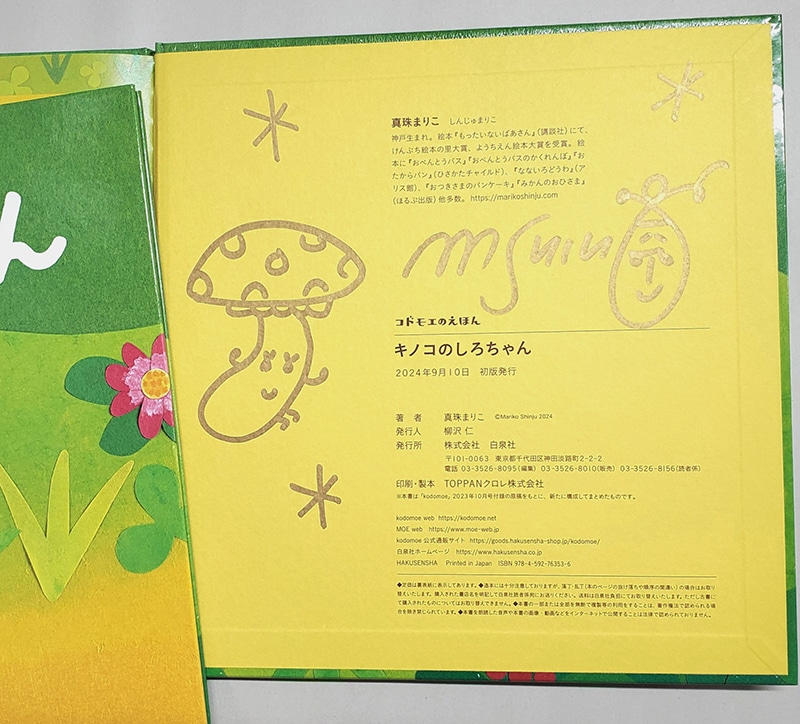 ん
真珠まりこ しんじゅまりこ
神戸生まれ。絵本『もったいないばあさん』(講談社)にて、
けんぶち絵本の里大賞、ようちえん絵本大賞を受賞。絵
本に『おべんとうバス』『おべんとうバスのかくれんぼ』『お
たからパン』(ひさかたチャイルド)、『なないろどうわ』(ア
リス館)、『おつきさまのパンケーキ』『みかんのおひさま』
(ほるぷ出版)他多数。https://marikoshinju.com
コドモエのえほん
キノコのしろちゃん
2024年9月10日 初版発行
著 者 真珠まりこ ©Mariko Shinju 2024
発行人 柳沢 仁
発行所 株式会社 白泉社
〒101-0063 東京都千代田区神田淡路町2-2-2
電話 03-3526-8095(編集) 03-3526-8010(販売) 03-3526-8156(読者係)
印刷・製本 TOPPANクロレ株式会社
※本書は「kodomoe」2023年10月号付録の原稿をもとに、新たに構成してまとめたものです。
kodomoe web https://kodomoe.net
MOE web https://www.moe-web.jp
kodomoe 公式通販サイト https://goods.hakusensha-shop.jp/kodomoe/
白泉社ホームページ https://www.hakusensha.co.jp
HAKUSENSHA Printed in Japan ISBN 978-4-592-76353-6
◆定価は裏表紙に表示してあります。◆造本には十分注意しておりますが、落丁・乱丁(本のページの抜け落ちや順序の間違い)の場合はお取り
替えいたします。購入された書店名を明記して白泉社読者係宛にお送りください。送料は白泉社負担にてお取り替えいたします。ただし古書に
て購入されたものについてはお取り替えできません。◆本書の一部または全部を無断で複製等の利用をすることは、著作権法で認められる場
合を除き禁じられています。◆本書を朗読した音声や本書の画像・動画などをインターネットで公開することは法律で認められておりません。